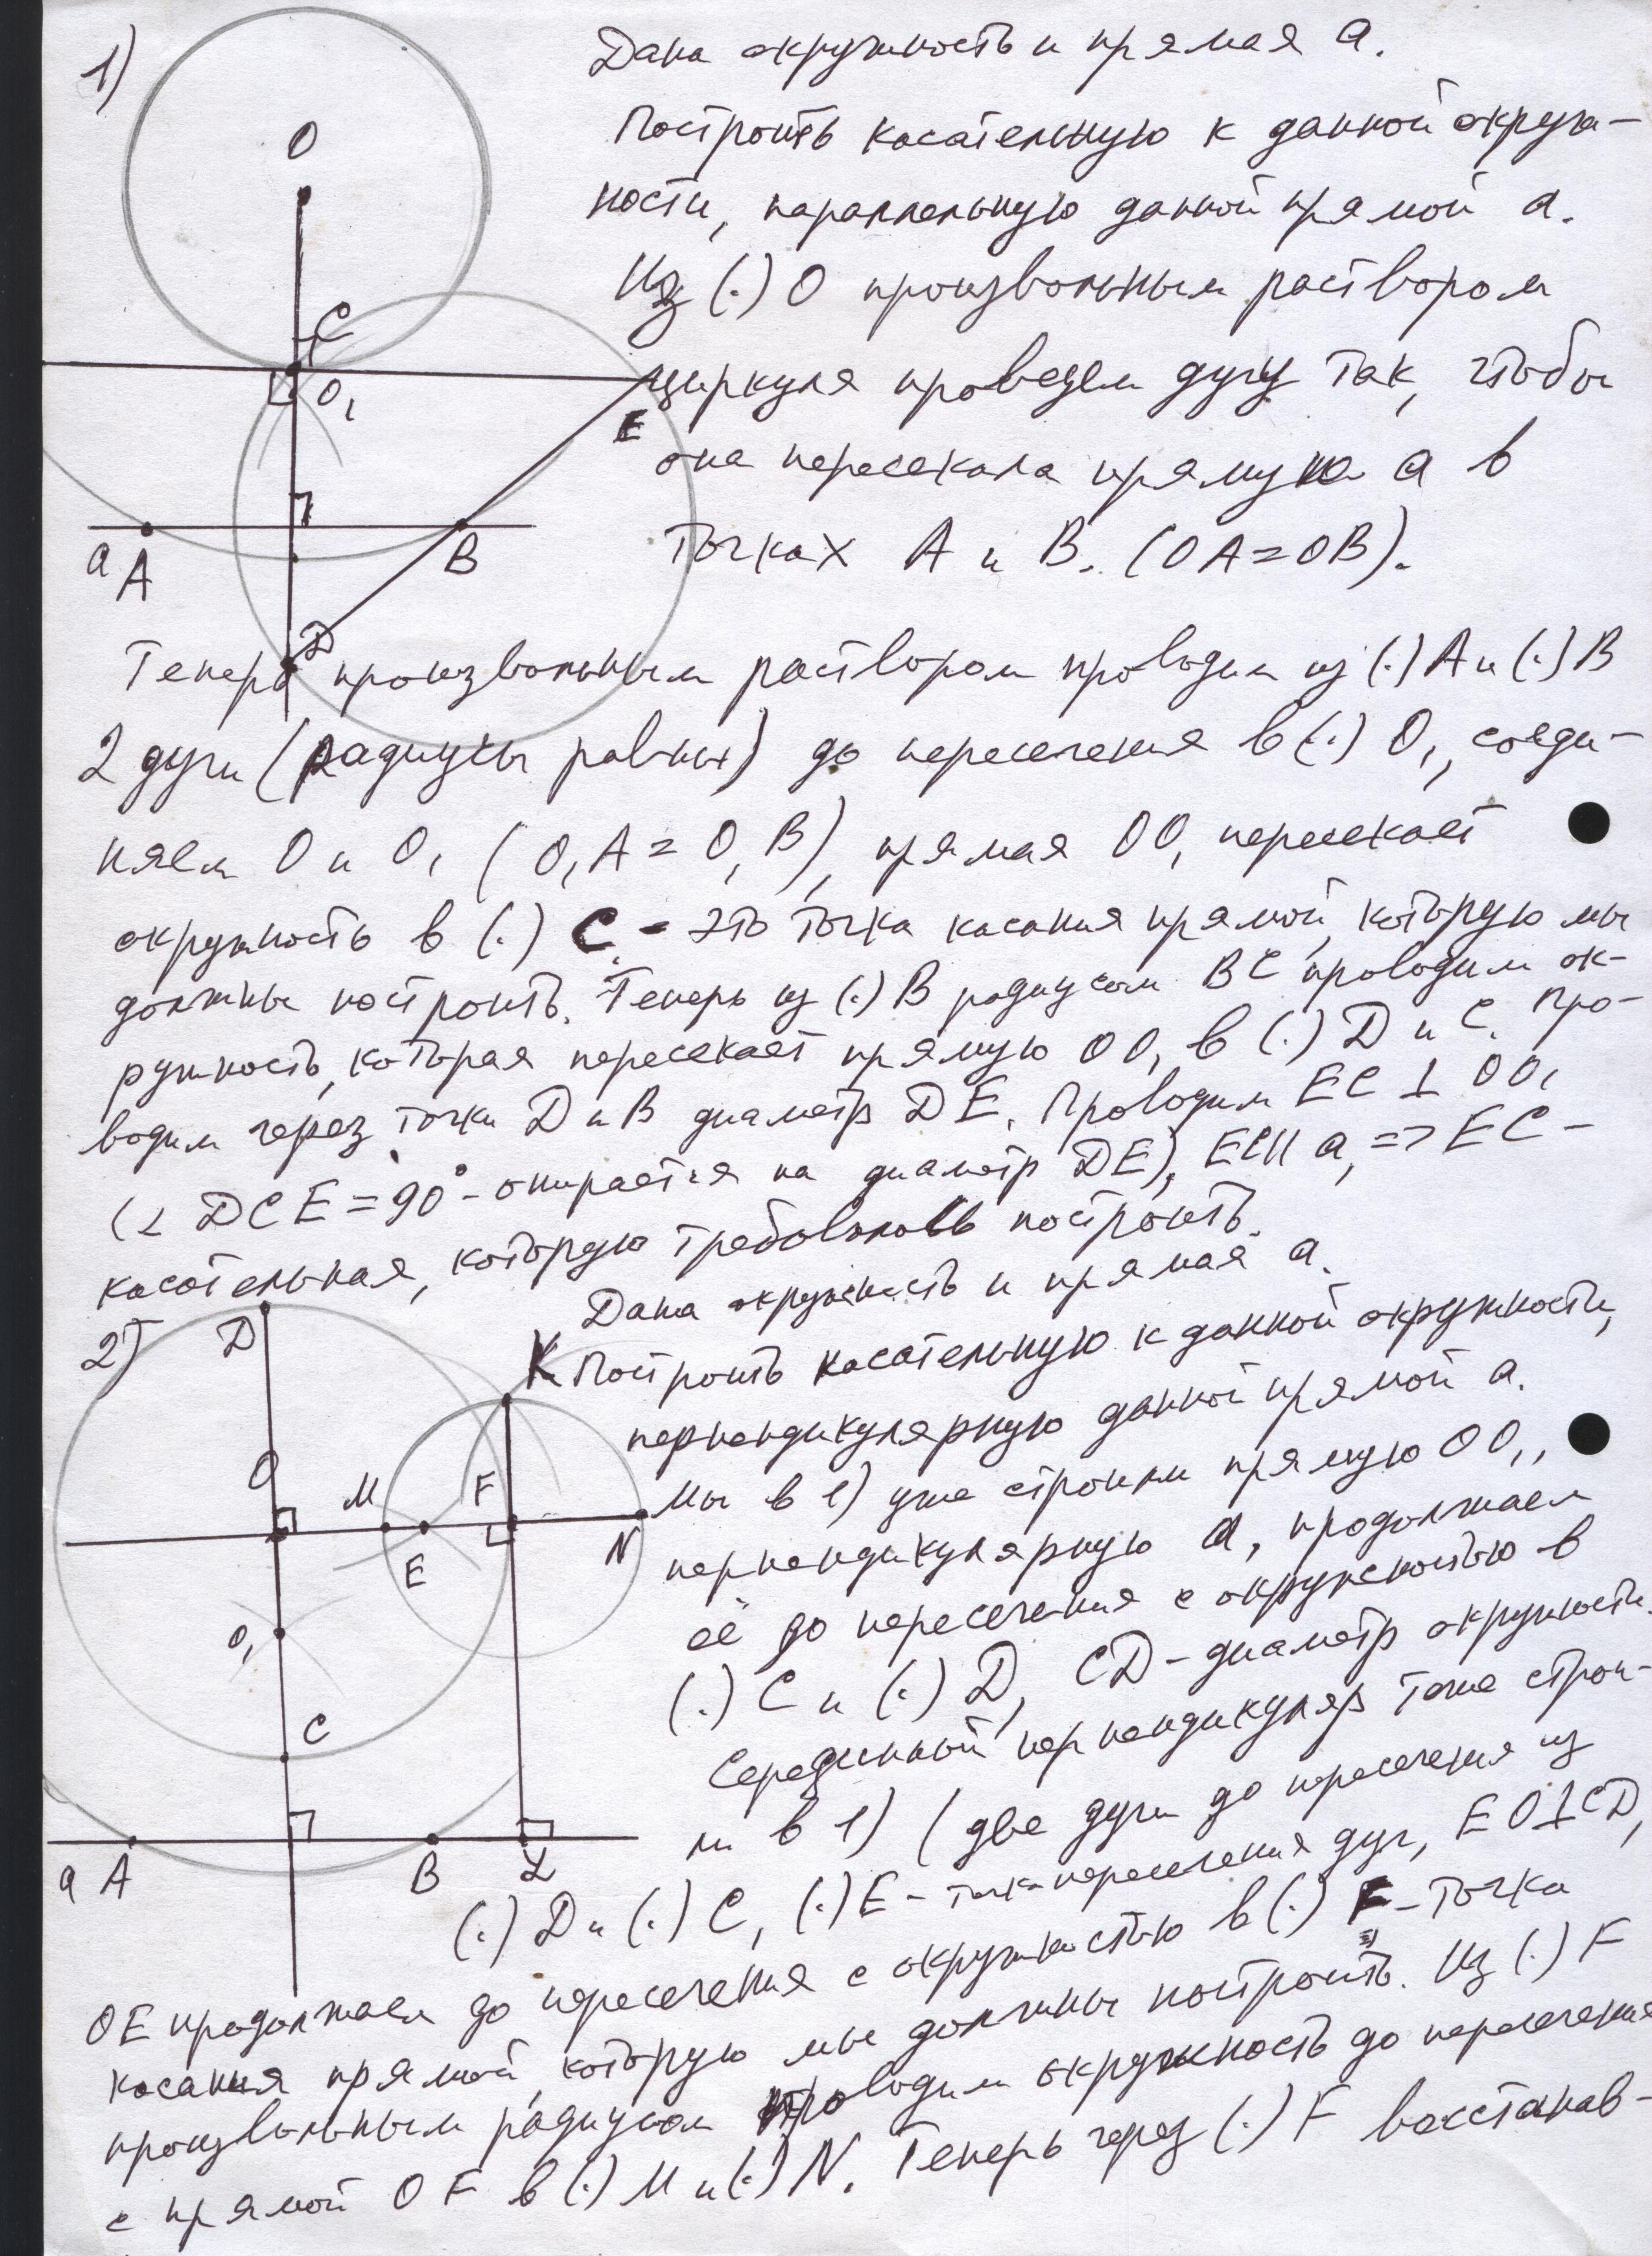 1)
Дана окружность и прямая a.
Построить касательную к данной окруж-
ности, параллельную данной прямой a.
Из (.) O произвольным раствором
циркуля проведем дугу так, чтобы
она пересекала прямую a в
точках A и B. (OA=OB).
O
C
O₁
E
a A
B
D
Теперь произвольным раствором проводим из (.) A и (.) B
2 дуги (радиусы равны) до пересечения в (.) O₁, соеди-
няем O и O₁ (O₁A = O₁B), прямая OO₁ пересекает
окружность в (.) C - это точка касания прямой, которую мы
должны построить. Теперь из (.) B радиусом BC проводим ок-
ружность, которая пересекает прямую OO₁ в (.) D и C. Про-
водим через точки D и B диаметр DE. Проводим EC ⊥ OO₁
(∠ DCE = 90° - опирается на диаметр DE), EC || a, => EC -
касательная, которую требовалось построить.
2)
Дана окружность и прямая a.
Построить касательную к данной окружности,
перпендикулярную данной прямой a.
Мы в 1) уже строили прямую OO₁,
перпендикулярную a, продолжаем
её до пересечения с окружностью в
(.) C и (.) D, CD - диаметр окружности.
Серединный перпендикуляр тоже строи-
ли в 1) (две дуги до пересечения из
D
K
O
M
F
E
N
O₁
C
a A
B
L
(.) D и (.) C, (.) E - точка пересечения дуг, EO ⊥ CD,
OE продолжаем до пересечения с окружностью в (.) F - точка
касания прямой, которую мы должны построить. Из (.) F
произвольным радиусом проводим окружность до пересечения
с прямой OF в (.) M и (.) N. Теперь через (.) F восстанав-